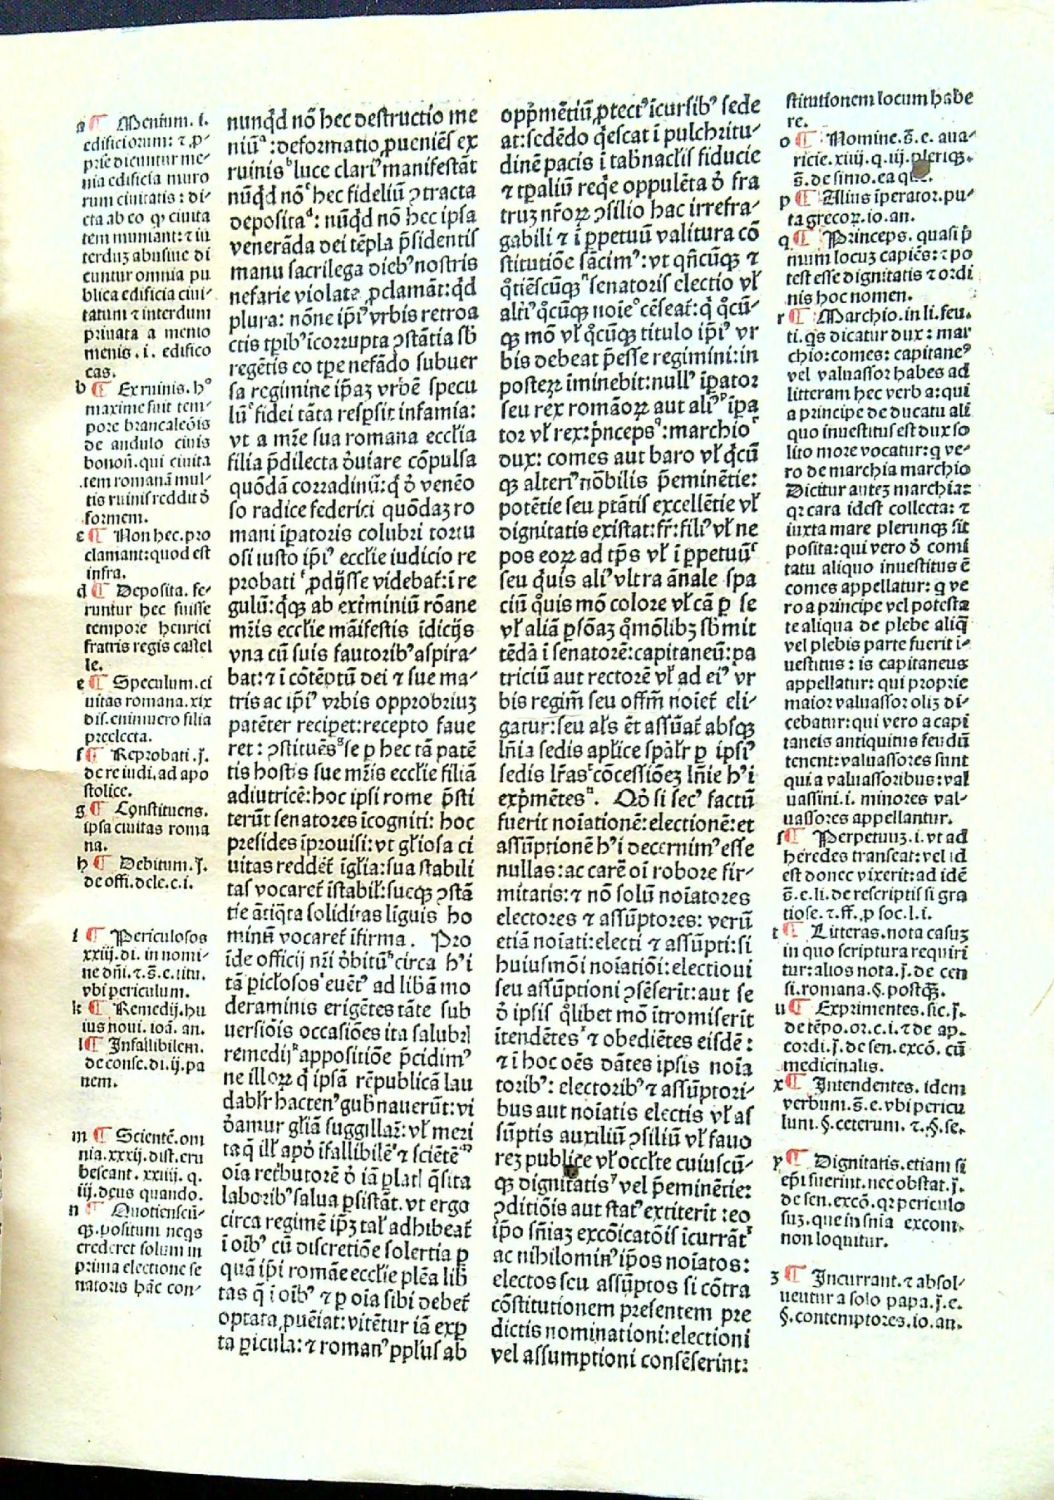 a ¶ Menium. i.
edificiorum: ⁊ ꝓ-
prie dicuntur me-
nia edificia muro
rum ciuitatis: di-
cta ab eo qꝫ ciuita
tem muniant: ⁊ in
terduꝫ abusiue di
cuntur omnia pu
blica edificia ciui-
tatum ⁊ interdum
priuata a menio
menis. i. edifico
cas.
b ¶ Ex ruinis. hꝰ
maxime fuit tem-
pore brancaleōis
de andulo ciuis
bonoñ. qui ciuita
tem romanā mul-
tis ruinis reddit ð
formem.
c ¶ Non hec. pro
clamant: quod est
infra.
d ¶ Deposita. fe-
runtur hec fuisse
tempore henrici
fratris regis castel
le.
e ¶ Speculum. ci
uitas romana. xix
dis. enimuero filia
preelecta.
f ¶ Reprobati. ſ.
de re iudi. ad apo
stolice.
g ¶ Constituens.
ipsa ciuitas roma
na.
h ¶ Debitum. ſ.
de offi. dele. c. i.
i ¶ Periculosos
xxiij. di. in nomi-
ne dñi. ⁊. s̄. e. titu.
vbi periculum.
k ¶ Remedij. hu
ius noui. ioā. an.
l ¶ Infallibilem.
de conse. di. ij. pa
nem.
m ¶ Scientē. om
nia. xxxij. dist. eru
bescant. xxiiij. q.
iij. deus quando.
n ¶ Quotienscū-
qꝫ. positum neqs
crederet solum in
prima electione se
natoris hāc con-
nunqd nō hec destructio me
niūᵃ: deformatio ꝓueniēs ex
ruinisᵇ luce clariꝰ manifestāt
nūqd nōᶜ hec fideliū ↄtracta
depositaᵈ: nūqd nō hec ipsa
venerāda dei tēpla p̄sidentis
manu sacrilega diebꝰ nostris
nefarie violate ꝓclamāt: qd
plura: nōne ip̄i vrbis retroa
ctis tp̄ibꝰ icorrupta ↄstātia sb
regētis eo tp̄e nefādo subuer
sa regimine ip̄aꝫ vrbē specu
lūᵉ fidei tāta respsit infamia:
vt a mr̄e sua romana ecclia
filia p̄dilecta ðuiare cōpulsa
quōdā corradinū: q̇ ð venēo
so radice federici quōdaꝫ ro
mani īpatoris colubri tortu
osi iusto ip̄iꝰ ecclie iudicio re
probatiᶠ ꝓdijsse videbat: i re
gulū: q̇qꝫ ab exterminiū rōane
mr̄is ecclie māifestis idicijs
vna cū suis fautoribꝰ aspira-
bat: ⁊ i cōtēptū dei ⁊ sue ma-
tris ac ip̄iꝰ vrbis opprobriuꝫ
patēter recipet: recepto faue
ret: ↄstituēsᵍ se p hec tā patē
tis hostis sue mr̄is ecclie filiā
adiutricē: hoc ipsi rome p̄sti
terūt senatores icogniti: hoc
presides iprouisi: vt gliosa ci
uitas reddet iglia: sua stabili
tas vocaret istabil: sueqꝫ ↄstā
tie ātiqta soliditas liguis ho
minū vocaret ifirma. Pro
ide officij nr̄i ðbitūʰ circa hꝰi
tā piclososⁱ euētꝰ ad libā mo
deraminis erigētes tāte sub
uersiōis occasiōes ita salubri
remedijᵏ appositiōe p̄cidimꝰ
ne illoꝝ q̇ ip̄sā rēpublicā lau
dablr hactenꝰ gubnauerūt: vi
ðamur gliā suggillare: vl meri
ta q̇ ill apð ifallibilēˡ ⁊ scientēᵐ
oīa retbutorē ð iā plati q̄sita
laboribꝰ salua ꝑsistāt. vt ergo
circa regimē ip̄ꝫ tal adhibeat
i oībꝰ cū discretiōe solertia p
quā ip̄i romāe ecclie plēa lib
tas q̄ i oībꝰ ⁊ p oīa sibi debet
optata ꝓueiat: vitētur iā exp̄
ta picula: ⁊ romanꝰ pplus ab
opp̄mētiū ꝓtectꝰ icursibꝰ sede
at: sedēdo q̇escat i pulchritu-
dine pacis i tabnaclis fiducie
⁊ tp̄aliū reqe oppulēta ð fra
truꝫ nr̄oꝝ ↄsilio hac irrefra-
gabili ⁊ i ppetuū valitura cō
stitutiōe sācimꝰ: vt qn̄cūqꝫ ⁊
q̇tiēscūqꝫⁿ senatoris electio vl
altiꝰ q̇cūqꝫ noieᵒ cēseat: q̇ q̇cū-
qꝫ mō vl q̇cūqꝫ titulo ip̄iꝰ vr
bis debeat p̄esse regimini: in
posteꝝ iminebit: nullꝰ ip̄ator
seu rex romāoꝝ aut aliꝰᵖ ip̄a
tor vl rex: p̄nceps: marchio
dux: comes aut baro vl q̇cū
qꝫ alteriꝰ nōbilis p̄eminētie:
potētie seu ptātis excellētie vl
dignitatis existat: fr̄: filiꝰ vl ne
pos eoꝝ ad tp̄s vl i ppetuū
seu q̇uis aliꝰ vltra ānale spa
ciū q̇uis mō colore vl cā p se
vl aliā psōaꝫ q̇mōlibꝫ sb mit
tēdā i senatorē: capitaneū: pa
triciū aut rectorē vl ad eiꝰ vr
bis regim̄ seu offm̄ noiet eli-
gatur: seu als et assūat absqꝫ
lnīa sedis aplice spālr p ipsiꝰ
sedis lr̄asᵗ cōcessiōeꝫ lnīe hꝰi
exp̄mētesᵘ. Qð si secꝰ factū
fuerit noiationē: electionē: et
assūptionē hꝰi decernimꝰ esse
nullas: ac carē oi robore fir-
mitatis: ⁊ nō solū noiatores
electores ⁊ assūptores: verū
etiā noiati: electi ⁊ assūpti: si
huiusmōi noiatiōi: electioui
seu assūptioni ↄsēserit: aut se
ð ipsis q̇libet mō itromiserit
itendētesˣ ⁊ obediētes eisdē:
⁊ i hoc oēs dātes ipsis noia
toribꝰ: electoribꝰ ⁊ assūptori-
bus aut noiatis electis vl as
sūptis auxiliū ↄsiliū vl fauo
reꝫ publice vl occlte cuiuscū-
qꝫ dignitatisʸ vel p̄eminētie:
ↄditiōis aut statꝰ extiterit: eo
ip̄o sn̄iaꝫ excōicatōis icurrātᶻ
ac nihilominꝰ ip̄os noiatos:
electos seu assūptos si cōtra
cōstitutionem presentem pre
dictis nominationi: electioni
vel assumptioni consēserint:
stitutionem locum habe
re.
o ¶ Nomine. s̄. e. aua-
ricie. xiiij. q. iij. plerique.
s̄. de simo. ea que.
p ¶ Alius īperator. pu-
ta grecoꝝ. io. an.
q ¶ Princeps. quasi p̄
mum locuꝫ capiēs: ⁊ po
test esse dignitatis ⁊ ordi
nis hoc nomen.
r ¶ Marchio. in li. feu.
ti. qs dicatur dux: mar
chio: comes: capitaneꝰ
vel valuassor habes ad
litteram hec verba: qui
a principe de ducatu ali
quo inuestitus est dux so
lito more vocatur: q ve-
ro de marchia marchio
Dicitur autez marchia:
qr cara idest collecta: ⁊
iuxta mare plerunqꝫ sit
posita: qui vero ð comi
tatu aliquo inuestitus ē
comes appellatur: q ve
ro a principe vel potesta
te aliqua de plebe aliq̄
vel plebis parte fuerit i-
uestitus: is capitaneus
appellatur: qui proprie
maior valuassor oliꝫ di-
cebatur: qui vero a capi
taneis antiquitus feudū
tenent: valuassores sunt
qui a valuassoribus: val
uassini. i. minores val-
uassores appellantur.
s ¶ Perpetuuꝫ. i. vt ad
heredes transeat: vel id
est donec vixerit: ad idē
s̄. e. li. de rescriptis si gra
tiose. ⁊. ff. ꝓ soc. l. i.
t ¶ Litteras. nota casuꝫ
in quo scriptura requiri
tur: alios nota. ſ. de cen
si. romana. §. postqꝫ.
u ¶ Exprimentes. sic. ſ.
de tēpo. or. c. i. ⁊ de ap.
cordi. ſ. de sen. excō. cū
medicinalis.
x ¶ Intendentes. idem
verbum. s̄. e. vbi pericu
lum. §. ceterum. ⁊. §. se.
y ¶ Dignitatis. etiam si
ep̄i fuerint. nec obstat. ſ.
de sen. excō. qꝛ periculo
suꝫ. que in sn̄ia excom-
non loquitur.
z ¶ Incurrant. ⁊ absol-
ueutur a solo papa. ſ. e.
§. contemptores. io. an.